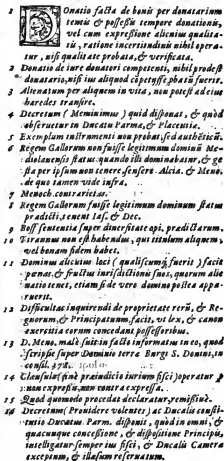 1 Donatio facta de bonis per donatarium
tentis & possessis tempore donationis,
vel cum expressione alicuius qualita-
tis, ratione incertitudinis nihil opera-
tur, nisi qualitate probata, & verificata.
2 Donatio de iure donatori competenti, nihil prodest
donatario, nisi ius aliquod cõpetijsse phatũ fuerit.
3 Alienatum per aliquem in vita, non potest ad eius
haredes transire.
4 Decretum (Meminimus) quid disponat, & quòd
obseruetur in Ducatu Parmæ, & Placentiæ.
5 Exemplum instrumenti non probat, sed authẽticũ.
6 Regem Gallorum non fuisse legitimum dominũ Me-
diolanensis status quando illi dominabatur, & ge-
sta per ipsum non tenere, sensere Alcia. & Meno.
de quo tamen vide infra.
7 Menoch. contrarietas.
8 Regem Gallorum fuisse legitimum dominum status
prædicti, tenent Ias. & Dec.
9 Boss. sententia super diuersitate opi. prædictarum.
10 Tirannus non est habendus, qui titulum aliquem,
vel bonam fidem habet.
11 Dominus alicuius loci (qualiscumq; fuerit) facit
pœnas, & fructus iurisdictionis suos, quorum alie
natio tenet, etiam si de vero domino postea appa-
ruerit.
12 Difficultas inquirendi de proprietate rerũ, & Re-
gnorum, & Principatuum, facit, vt lex, & canon
exercitia eorum concedant possessoribus.
13 D. Meno. malè fuit in facto informatus in eo, quod
scripsit super Dominio terræ Burgi S. Donini, in
consil. 978.
14 Clausula (sine præiudicio iurium fisci) operatur p
non expressis, non contra expressa.
15 Quod quomodo procedat declaratur, remissiuè.
16 Decretum (Prouidere volentes) ac Ducalis consti-
tutio Ducatus Parm. disponit, quòd in omni, &
quacunque concessione, & dispositione Principis,
intelligatur semper ius fisci, & Ducalis Cameræ
exceptum, & illæsum reseruatum.